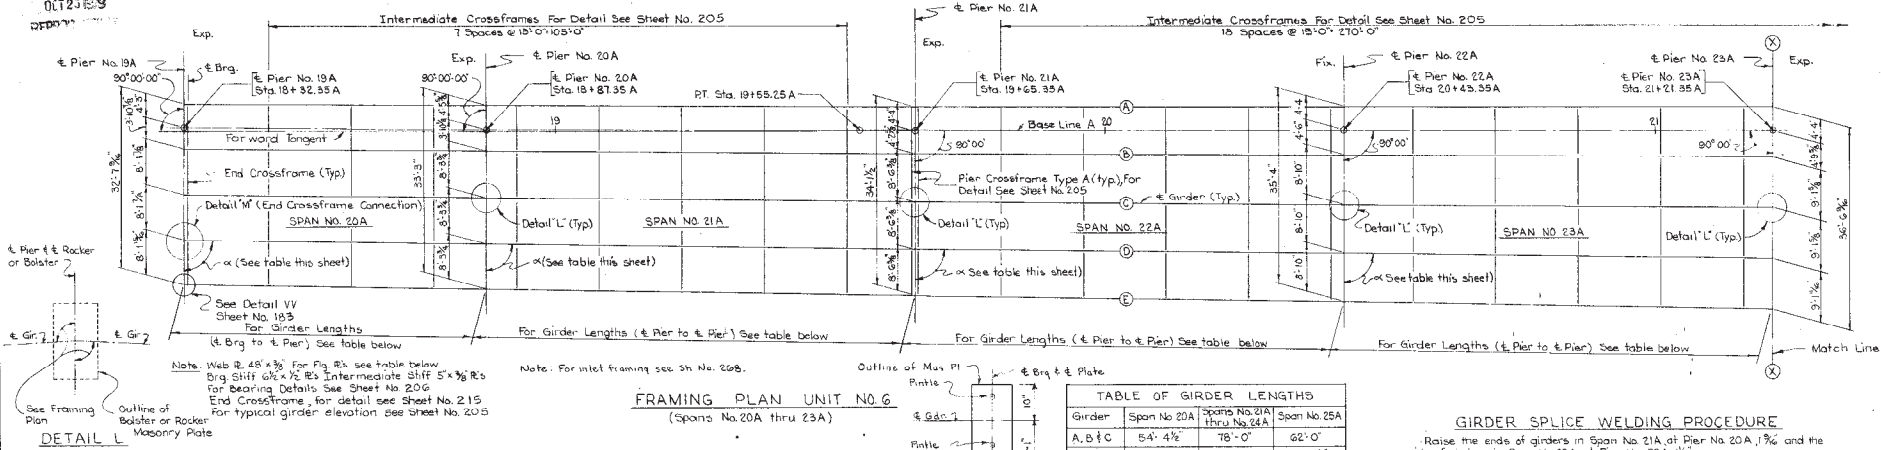 OCT 23
Intermediate Crossframes For Detail See Sheet No. 205
7 Spaces @ 15'-0"=105'-0"
℄ Pier No. 21A
Intermediate Crossframes For Detail See Sheet No. 205
18 Spaces @ 15'-0"= 270'-0"
Exp.
Exp.
Exp.
Fix.
Exp.
℄ Pier No. 19A
℄ Brg.
℄ Pier No. 20A
℄ Pier No. 22A
℄ Pier No. 23A
X
90°00'00"
℄ Pier No. 19A
Sta. 18+32.35A
90°00'00"
℄ Pier No. 20A
Sta. 18+87.35A
P.T. Sta. 19+55.25A
℄ Pier No. 21A
Sta. 19+65.35A
℄ Pier No. 22A
Sta. 20+43.35A
℄ Pier No. 23A
Sta. 21+21.35A
A
19
Base Line A 20
21
Forward Tangent
90°00'
90°00'
90°00'
B
32'-7 9/16"
33'-3"
34'-1 1/2"
35'-4"
36'-6 9/16"
4'-3"
4'-4"
4'-4"
4'-6"
4'-4"
8'-1 7/8"
8'-1 7/8"
8'-3 3/4"
8'-3 3/4"
8'-3 3/4"
8'-6 3/8"
8'-6 3/8"
8'-6 3/8"
8'-10"
8'-10"
8'-10"
9'-1 5/8"
9'-1 5/8"
End Crossframe (Typ.)
Pier Crossframe Type A (typ.), For
Detail See Sheet No. 205
C
℄ Girder (Typ.)
Detail "M" (End Crossframe Connection)
SPAN NO. 20A
Detail "L" (Typ.)
SPAN NO. 21A
Detail "L" (Typ)
SPAN NO. 22A
Detail "L" (Typ.)
SPAN NO 23A
Detail "L" (Typ.)
D
α (See table this sheet)
α (See table this sheet)
α See table this sheet)
α See table this sheet)
E
℄ Pier & ℄ Rocker
or Bolster
See Detail VV
Sheet No. 183
For Girder Lengths
(℄ Brg to ℄ Pier) See table below
For Girder Lengths (℄ Pier to ℄ Pier) See table below
For Girder Lengths (℄ Pier to ℄ Pier) See table below
For Girder Lengths (℄ Pier to ℄ Pier) See table below
Match Line
X
℄ Gir.
℄ Gir.
See Framing
Plan
Outline of
Bolster or Rocker
Masonry Plate
DETAIL L
Note: Web ℞ 48"x 3/8" For Flg. ℞'s see table below
Brg. Stiff 6 1/2 x 1/2 ℞'s Intermediate Stiff 5"x 3/8 ℞'s
For Bearing Details See Sheet No. 206
End Crossframe, for detail see Sheet No. 215
For typical girder elevation see Sheet No. 205
Note: For inlet framing see Sh No. 268.
FRAMING PLAN UNIT NO. 6
(Spans No. 20A thru 23A)
Outline of Mas Pl
℄ Brg & ℄ Plate
Pintle
℄ Gdr.
Pintle
10"
TABLE OF GIRDER LENGTHS
Girder Span No 20A Spans No. 21A thru No. 24A Span No. 25A
A, B & C 54'-4 1/2" 78'-0" 62'-0"
GIRDER SPLICE WELDING PROCEDURE
Raise the ends of girders in Span No. 21A, at Pier No. 20A, 1 9/16" and the